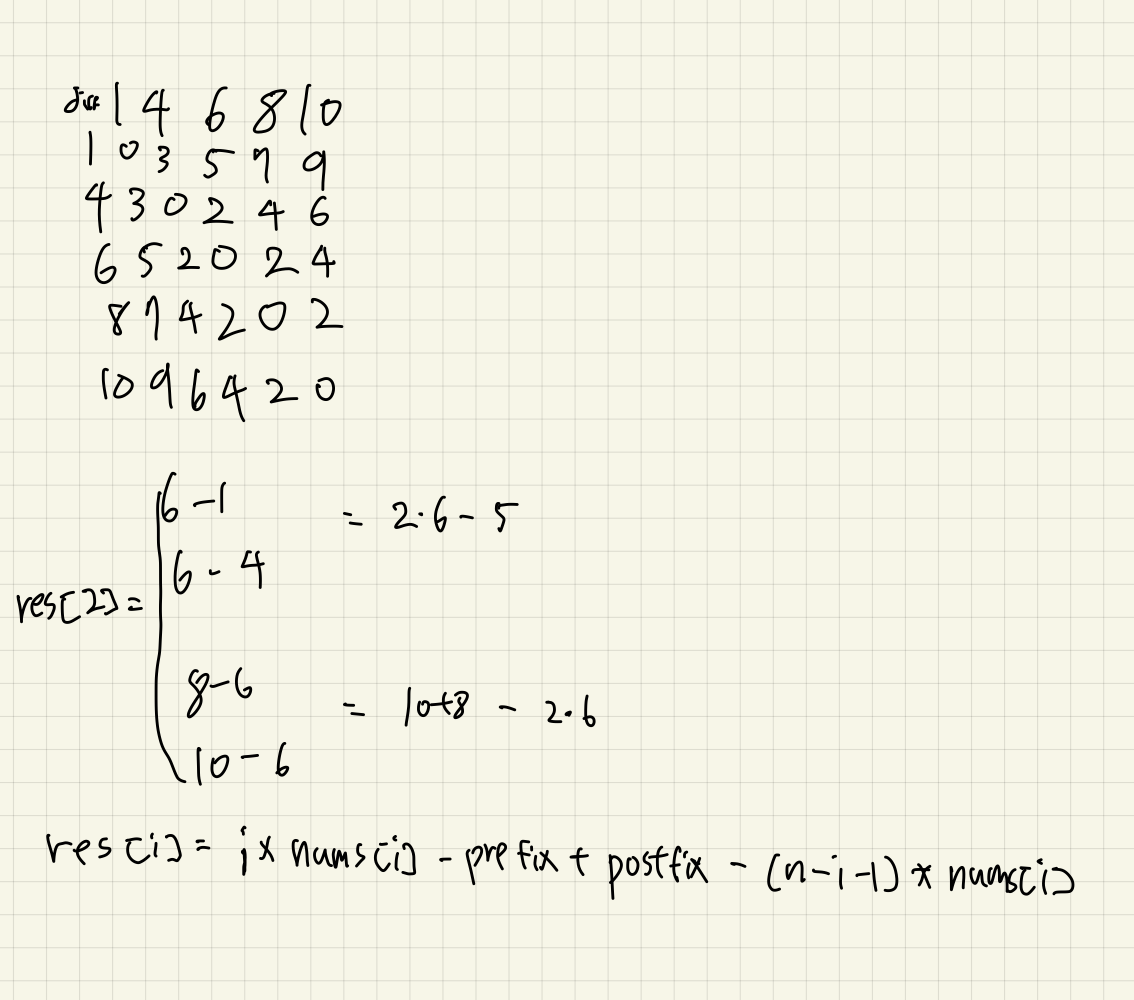 diff 1 4 6 8 10
1 0 3 5 7 9
4 3 0 2 4 6
6 5 2 0 2 4
8 7 4 2 0 2
10 9 6 4 2 0
6-1 = 2·6-5
6-4
res[2]=
8-6 = 10+8 - 2·6
10-6
res[i]= i* nums[i] - prefix + postfix - (n-i-1) * nums[i]